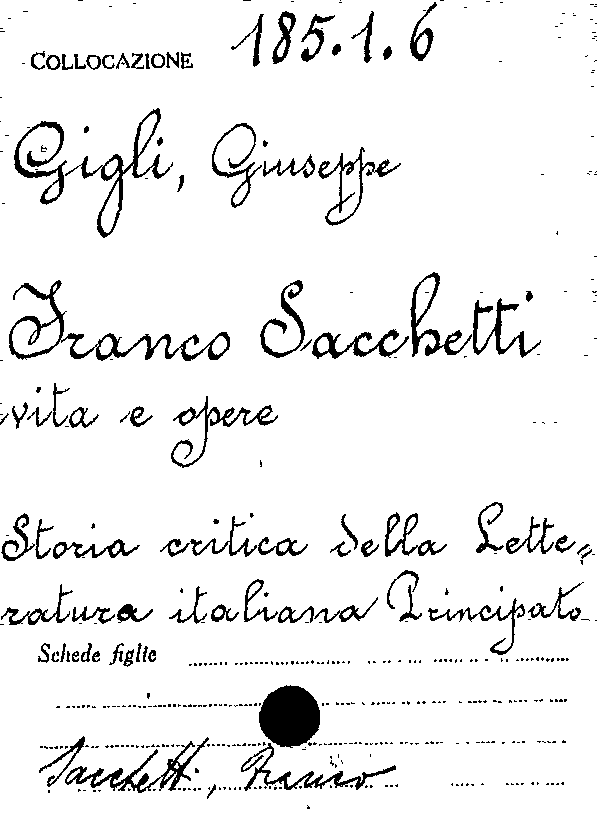 COLLOCAZIONE 185.1.6
Gigli, Giuseppe
Franco Sacchetti
vita e opere
Storia critica della Lette=
ratura italiana Principato
Schede figlie
Sacchetti, Franco